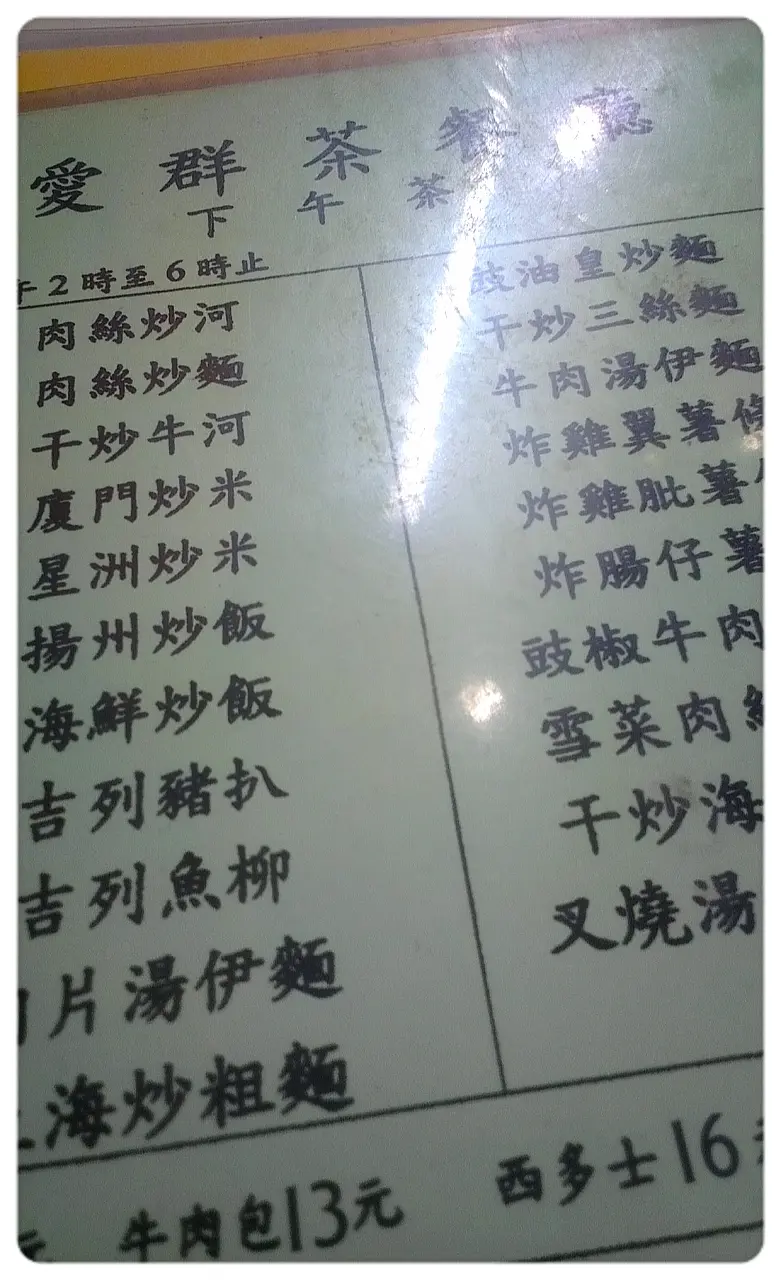 愛群茶餐廳
下午茶
午2時至6時止
肉絲炒河
肉絲炒麵
干炒牛河
廈門炒米
星洲炒米
揚州炒飯
海鮮炒飯
吉列豬扒
吉列魚柳
片湯伊麵
海炒粗麵
豉油皇炒麵
干炒三絲麵
牛肉湯伊麵
炸雞翼薯條
炸雞肶薯
炸腸仔薯
豉椒牛肉
雪菜肉絲
干炒海
叉燒湯
元 牛肉包13元 西多士16元